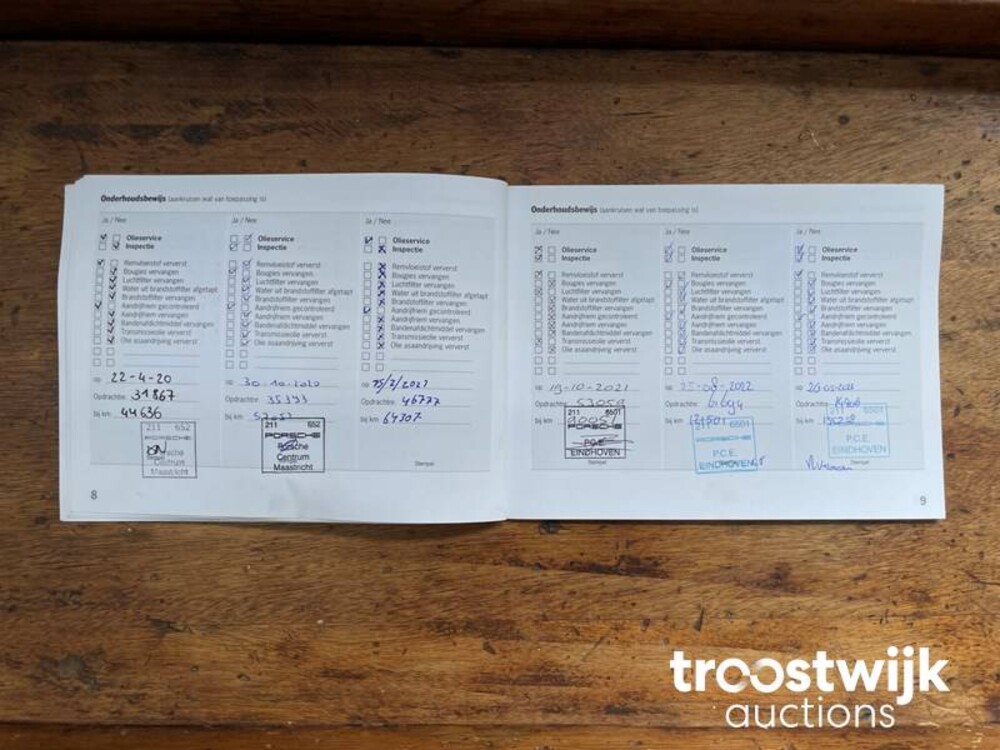 Onderhoudsbewijs (aankruisen wat van toepassing is)
Ja / Nee
Olieservice
Inspectie
Remvloeistof ververst
Bougies vervangen
Luchtfilter vervangen
Water uit brandstoffilter afgetapt
Brandstoffilter vervangen
Aandrijfriem gecontroleerd
Aandrijfriem vervangen
Bandenafdichtmiddel vervangen
Transmissieolie ververst
Olie asaandrijving ververst
op 22-4-20
Opdrachtnr. 31867
bij km 44636
211 652
PORSCHE
Centrum
Maastricht
8
Ja / Nee
Olieservice
Inspectie
Remvloeistof ververst
Bougies vervangen
Luchtfilter vervangen
Water uit brandstoffilter afgetapt
Brandstoffilter vervangen
Aandrijfriem gecontroleerd
Aandrijfriem vervangen
Bandenafdichtmiddel vervangen
Transmissieolie ververst
Olie asaandrijving ververst
op 30-10-2020
Opdrachtnr.
bij km
211 652
PORSCHE
Porsche
Centrum
Maastricht
Ja / Nee
Olieservice
Inspectie
Remvloeistof ververst
Bougies vervangen
Luchtfilter vervangen
Water uit brandstoffilter afgetapt
Brandstoffilter vervangen
Aandrijfriem gecontroleerd
Aandrijfriem vervangen
Bandenafdichtmiddel vervangen
Transmissieolie ververst
Olie asaandrijving ververst
op
Opdrachtnr. 46777
bij km 64307
Stempel
Onderhoudsbewijs (aankruisen wat van toepassing is)
Ja / Nee
Olieservice
Inspectie
Remvloeistof ververst
Bougies vervangen
Luchtfilter vervangen
Water uit brandstoffilter afgetapt
Brandstoffilter vervangen
Aandrijfriem gecontroleerd
Aandrijfriem vervangen
Bandenafdichtmiddel vervangen
Transmissieolie ververst
Olie asaandrijving ververst
op 19-10-2021
Opdrachtnr. 53059
bij km
211 6501
PORSCHE
P.C.E.
EINDHOVEN
Stempel
Ja / Nee
Olieservice
Inspectie
Remvloeistof ververst
Bougies vervangen
Luchtfilter vervangen
Water uit brandstoffilter afgetapt
Brandstoffilter vervangen
Aandrijfriem gecontroleerd
Aandrijfriem vervangen
Bandenafdichtmiddel vervangen
Transmissieolie ververst
Olie asaandrijving ververst
op
Opdrachtnr.
bij km
6501
PORSCHE
P.C.E.
EINDHOVEN
Ja / Nee
Olieservice
Inspectie
Remvloeistof ververst
Bougies vervangen
Luchtfilter vervangen
Water uit brandstoffilter afgetapt
Brandstoffilter vervangen
Aandrijfriem gecontroleerd
Aandrijfriem vervangen
Bandenafdichtmiddel vervangen
Transmissieolie ververst
Olie asaandrijving ververst
op
Opdrachtnr.
bij km
211 6501
P.C.E.
EINDHOVEN
Stempel
9
troostwijk
auctions